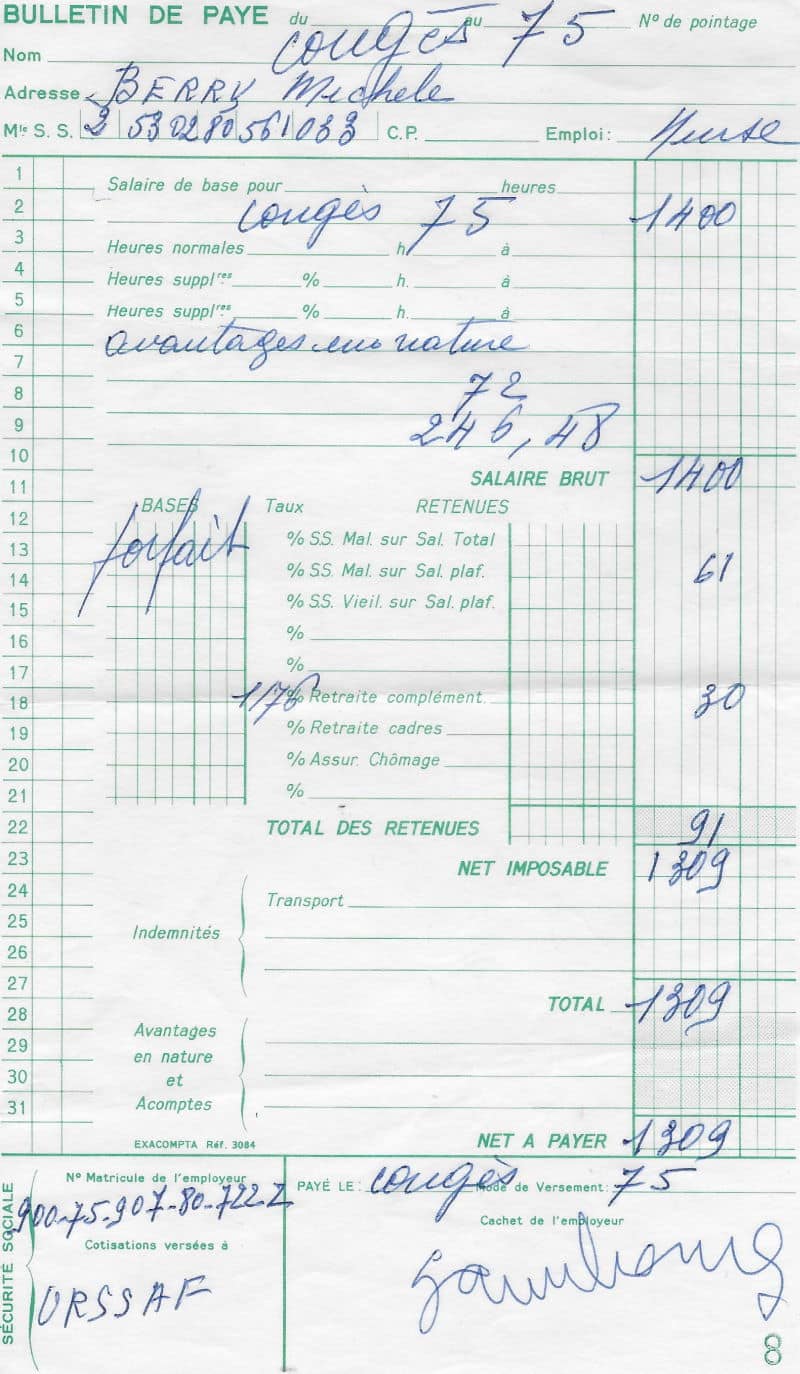 BULLETIN DE PAYE du congès au 75 N° de pointage
Nom
Adresse BERRY Michele
Mle S. S. 2 530280561033 C.P. Emploi: Nurse
1 Salaire de base pour heures
2 congès 75 1400
3 Heures normales h. à
4 Heures supplres % h. à
5 Heures supplres % h. à
6 avantages en nature
7
8 72
9 246,48
10 SALAIRE BRUT 1400
11
12 BASES Taux RETENUES
13 forfait % S.S. Mal. sur Sal. Total
14 % S.S. Mal. sur Sal. plaf. 61
15 % S.S. Vieil. sur Sal. plaf.
16 %
17 %
18 1/76 % Retraite complément. 30
19 % Retraite cadres
20 % Assur. Chômage
21 %
22 TOTAL DES RETENUES 91
23 NET IMPOSABLE 1309
24 Transport
25 Indemnités
26
27
28 TOTAL 1309
29 Avantages
en nature
30 et
31 Acomptes
EXACOMPTA Réf. 3084 NET A PAYER 1309
SÉCURITÉ SOCIALE
N° Matricule de l'employeur
900-75-907-80-722 Z
Cotisations versées à
URSSAF
PAYÉ LE: congès Mode de Versement: 75
Cachet de l'employeur
8